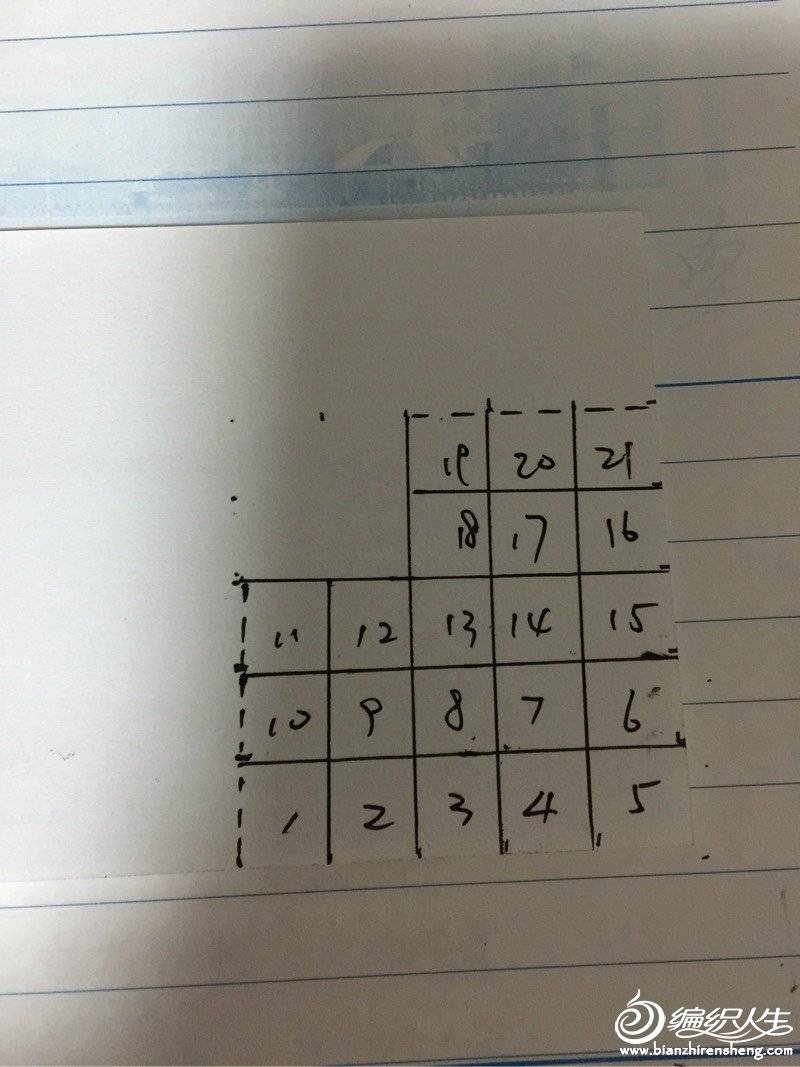 19 20 21
18 17 16
11 12 13 14 15
10 9 8 7 6
1 2 3 4 5
编织人生
www.bianzhirensheng.com